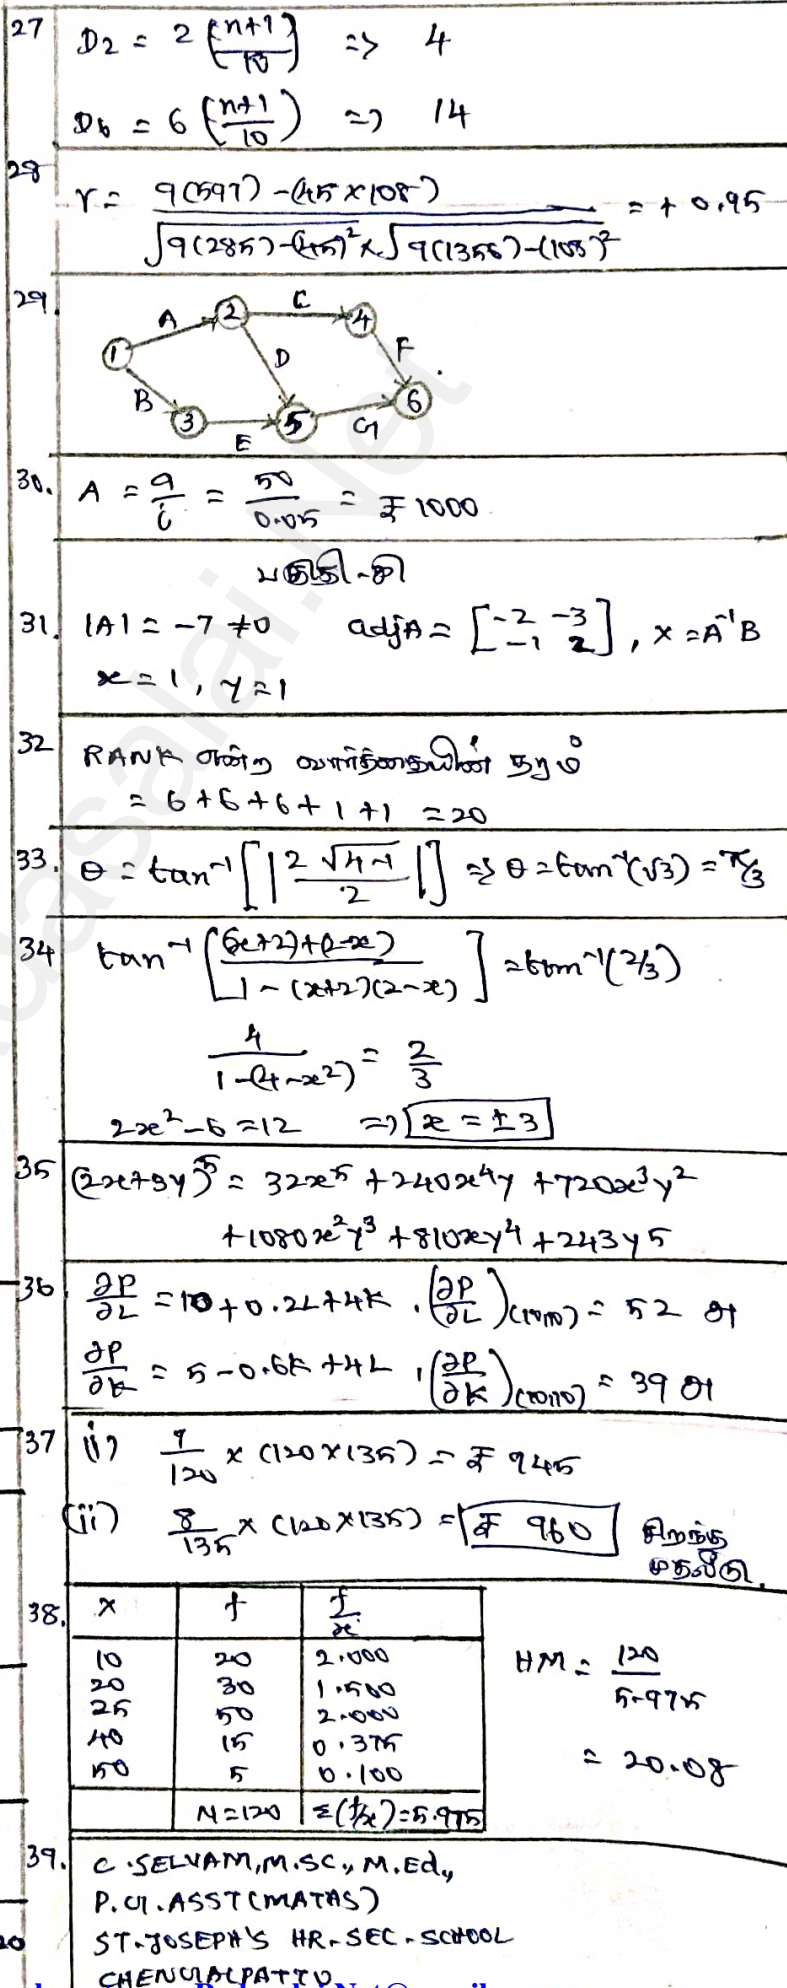 27 D2 = 2 (n+1/10) => 4
D6 = 6 (n+1/10) => 14
28 r = 9(597) - (45 x 108) / √9(285) - (45)² x √9(1356) - (108)² = + 0.95
29. 1 A 2 C 4 F 6 B 3 D E 5 G
30. A = a/i = 50/0.05 = ₹ 1000
பகுதி - இ
31. |A| = -7 ≠ 0 adjA = [-2 -3 -1 2], x = A⁻¹B
x = 1, y = 1
32 RANK என்ற வார்த்தையின் தரம்
= 6 + 6 + 6 + 1 + 1 = 20
33. θ = tan⁻¹ [|2 √4-1 / 2|] => θ = tan⁻¹(√3) = π/3
34 tan⁻¹ [(x+2)+(2-x) / 1 - (x+2)(2-x)] = tan⁻¹(2/3)
4 / 1-(4-x²) = 2/3
2x² - 6 = 12 => x = ±3
35 (2x+3y)⁵ = 32x⁵ + 240x⁴y + 720x³y²
+ 1080x²y³ + 810xy⁴ + 243y5
36 ∂P/∂L = 10 + 0.2L + 4K . (∂P/∂L)(10,10) = 52 அ
∂P/∂K = 5 - 0.6K + 4L , (∂P/∂K)(10,10) = 39 அ
37 (i) 7/120 x (120 x 135) = ₹ 945
(ii) 8/135 x (120 x 135) = ₹ 960 சிறந்த
முதலீடு.
38. x f f/x
10 20 2.000
20 30 1.500
25 50 2.000
40 15 0.375
50 5 0.100
N = 120 Σ(f/x) = 5.975
HM = 120 / 5.975
= 20.08
39. C. SELVAM, M.SC., M.Ed.,
P.G. ASST (MATHS)
ST. JOSEPH'S HR. SEC. SCHOOL
CHENGALPATTU